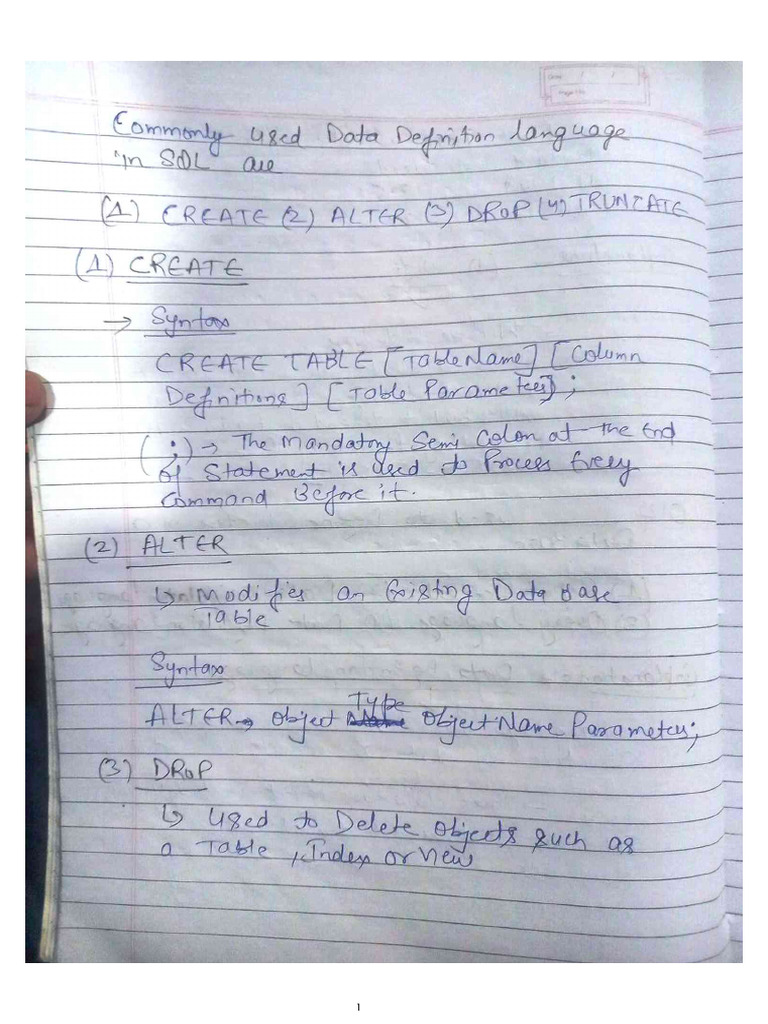 Commonly used Data Definition language
in SQL are
(1) CREATE (2) ALTER (3) DROP (4) TRUNCATE
(1) CREATE
→ Syntax
CREATE TABLE [Table Name] [Column
Definitions] [Table Parameters];
(;) → The Mandatory Semi Colon at the End
of Statement is used to Process Every
Command Before it.
(2) ALTER
↳ Modifies an Existing Data base
Table
Syntax
ALTER → Object Type Object Name Parameter;
(3) DROP
↳ used to Delete Objects such as
a Table, Index or View
1